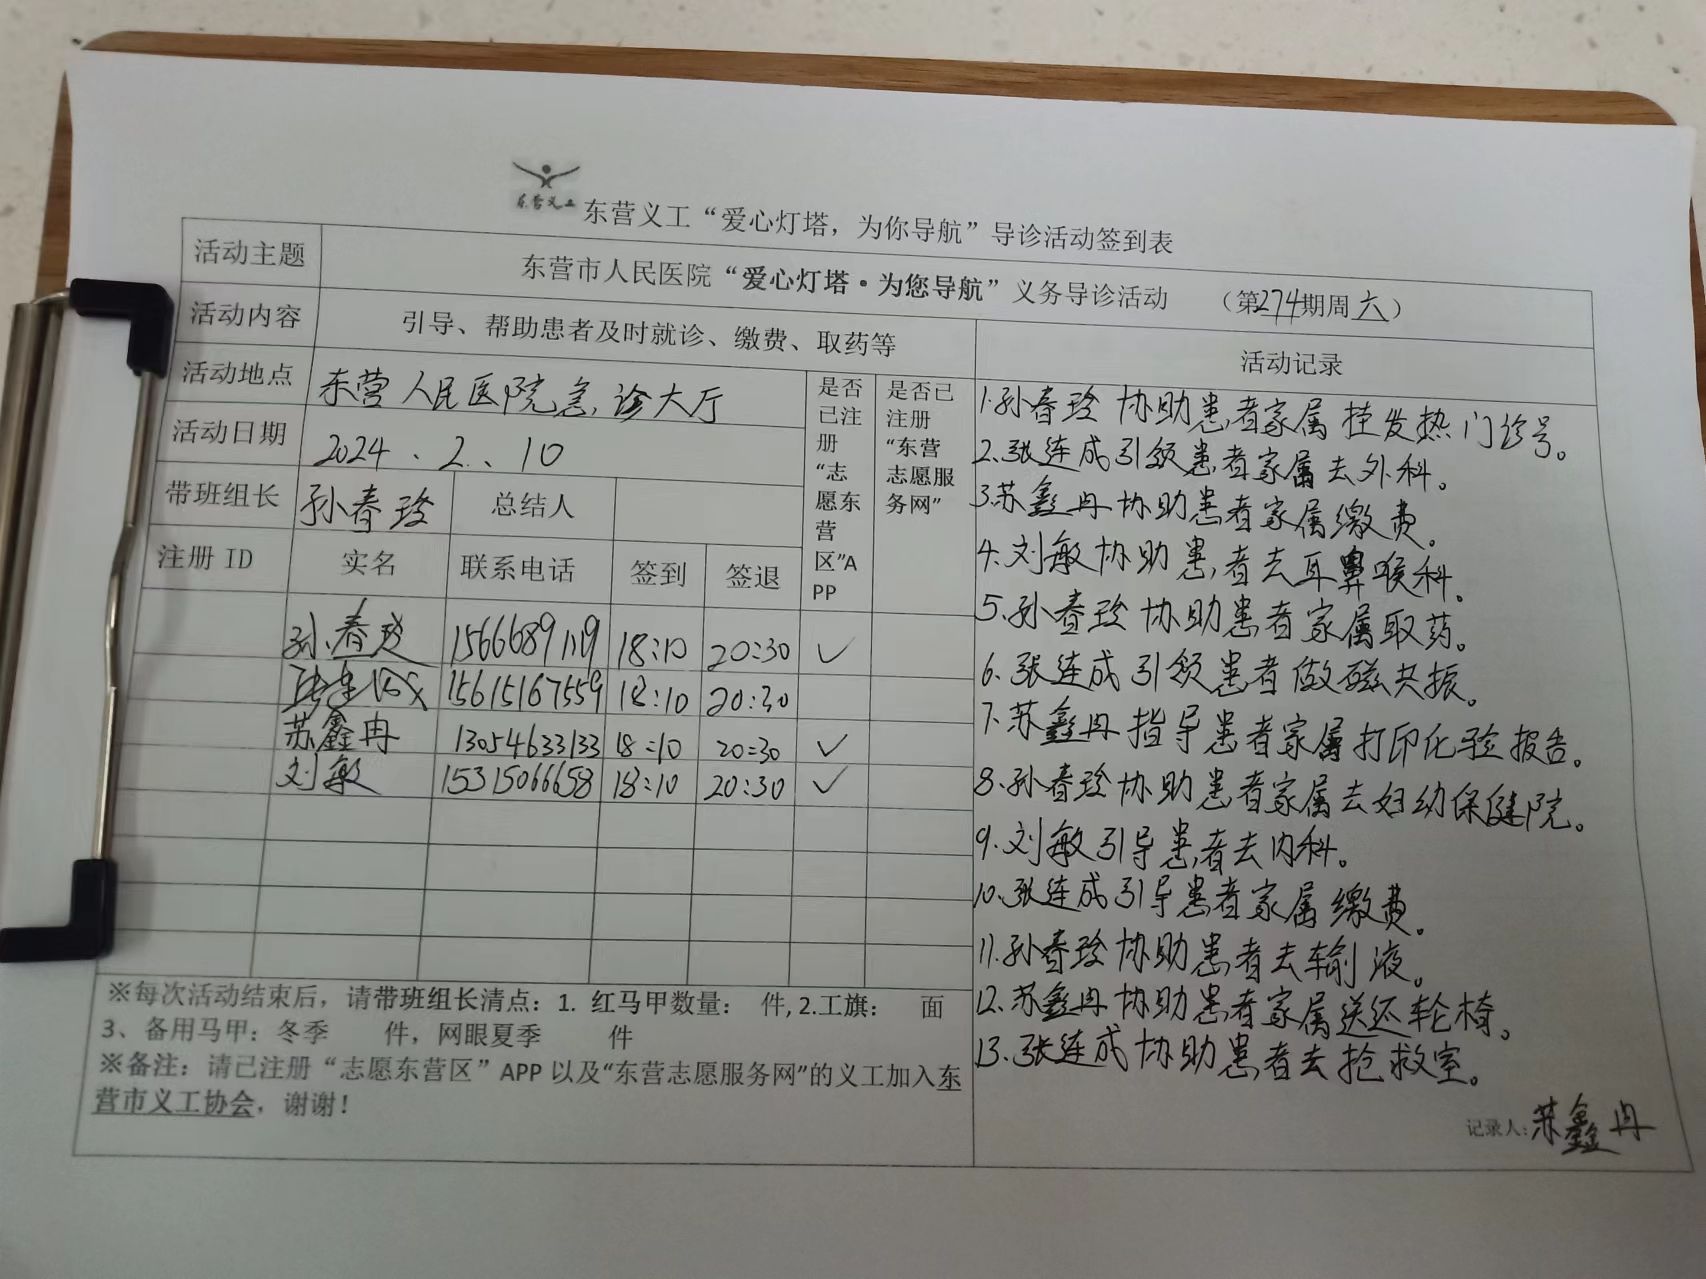 东营义工
东营义工“爱心灯塔，为你导航”导诊活动签到表
活动主题 东营市人民医院“爱心灯塔·为您导航”义务导诊活动 （第274期周六）
活动内容 引导、帮助患者及时就诊、缴费、取药等
活动地点 东营人民医院急诊大厅
活动日期 2024、2、10
带班组长 孙春玲 总结人
是否已注册“志愿东营区”APP
是否已注册“东营志愿服务网”
注册 ID 实名 联系电话 签到 签退
孙春玲 15666891119 18:10 20:30 ✓
张连成 15615167559 18:10 20:30
苏鑫冉 13054633133 18:10 20:30 ✓
刘敏 15315066658 18:10 20:30 ✓
※每次活动结束后，请带班组长清点：1. 红马甲数量： 件, 2.工旗： 面
3、备用马甲：冬季 件，网眼夏季 件
※备注：请已注册“志愿东营区”APP 以及“东营志愿服务网”的义工加入东
营市义工协会，谢谢！
活动记录
1.孙春玲协助患者家属挂发热门诊号。
2.张连成引领患者家属去外科。
3.苏鑫冉协助患者家属缴费。
4.刘敏协助患者去耳鼻喉科。
5.孙春玲协助患者家属取药。
6.张连成引领患者做磁共振。
7.苏鑫冉指导患者家属打印化验报告。
8.孙春玲协助患者家属去妇幼保健院。
9.刘敏引导患者去内科。
10.张连成引导患者家属缴费。
11.孙春玲协助患者去输液。
12.苏鑫冉协助患者家属送还轮椅。
13.张连成协助患者去抢救室。
记录人：苏鑫冉